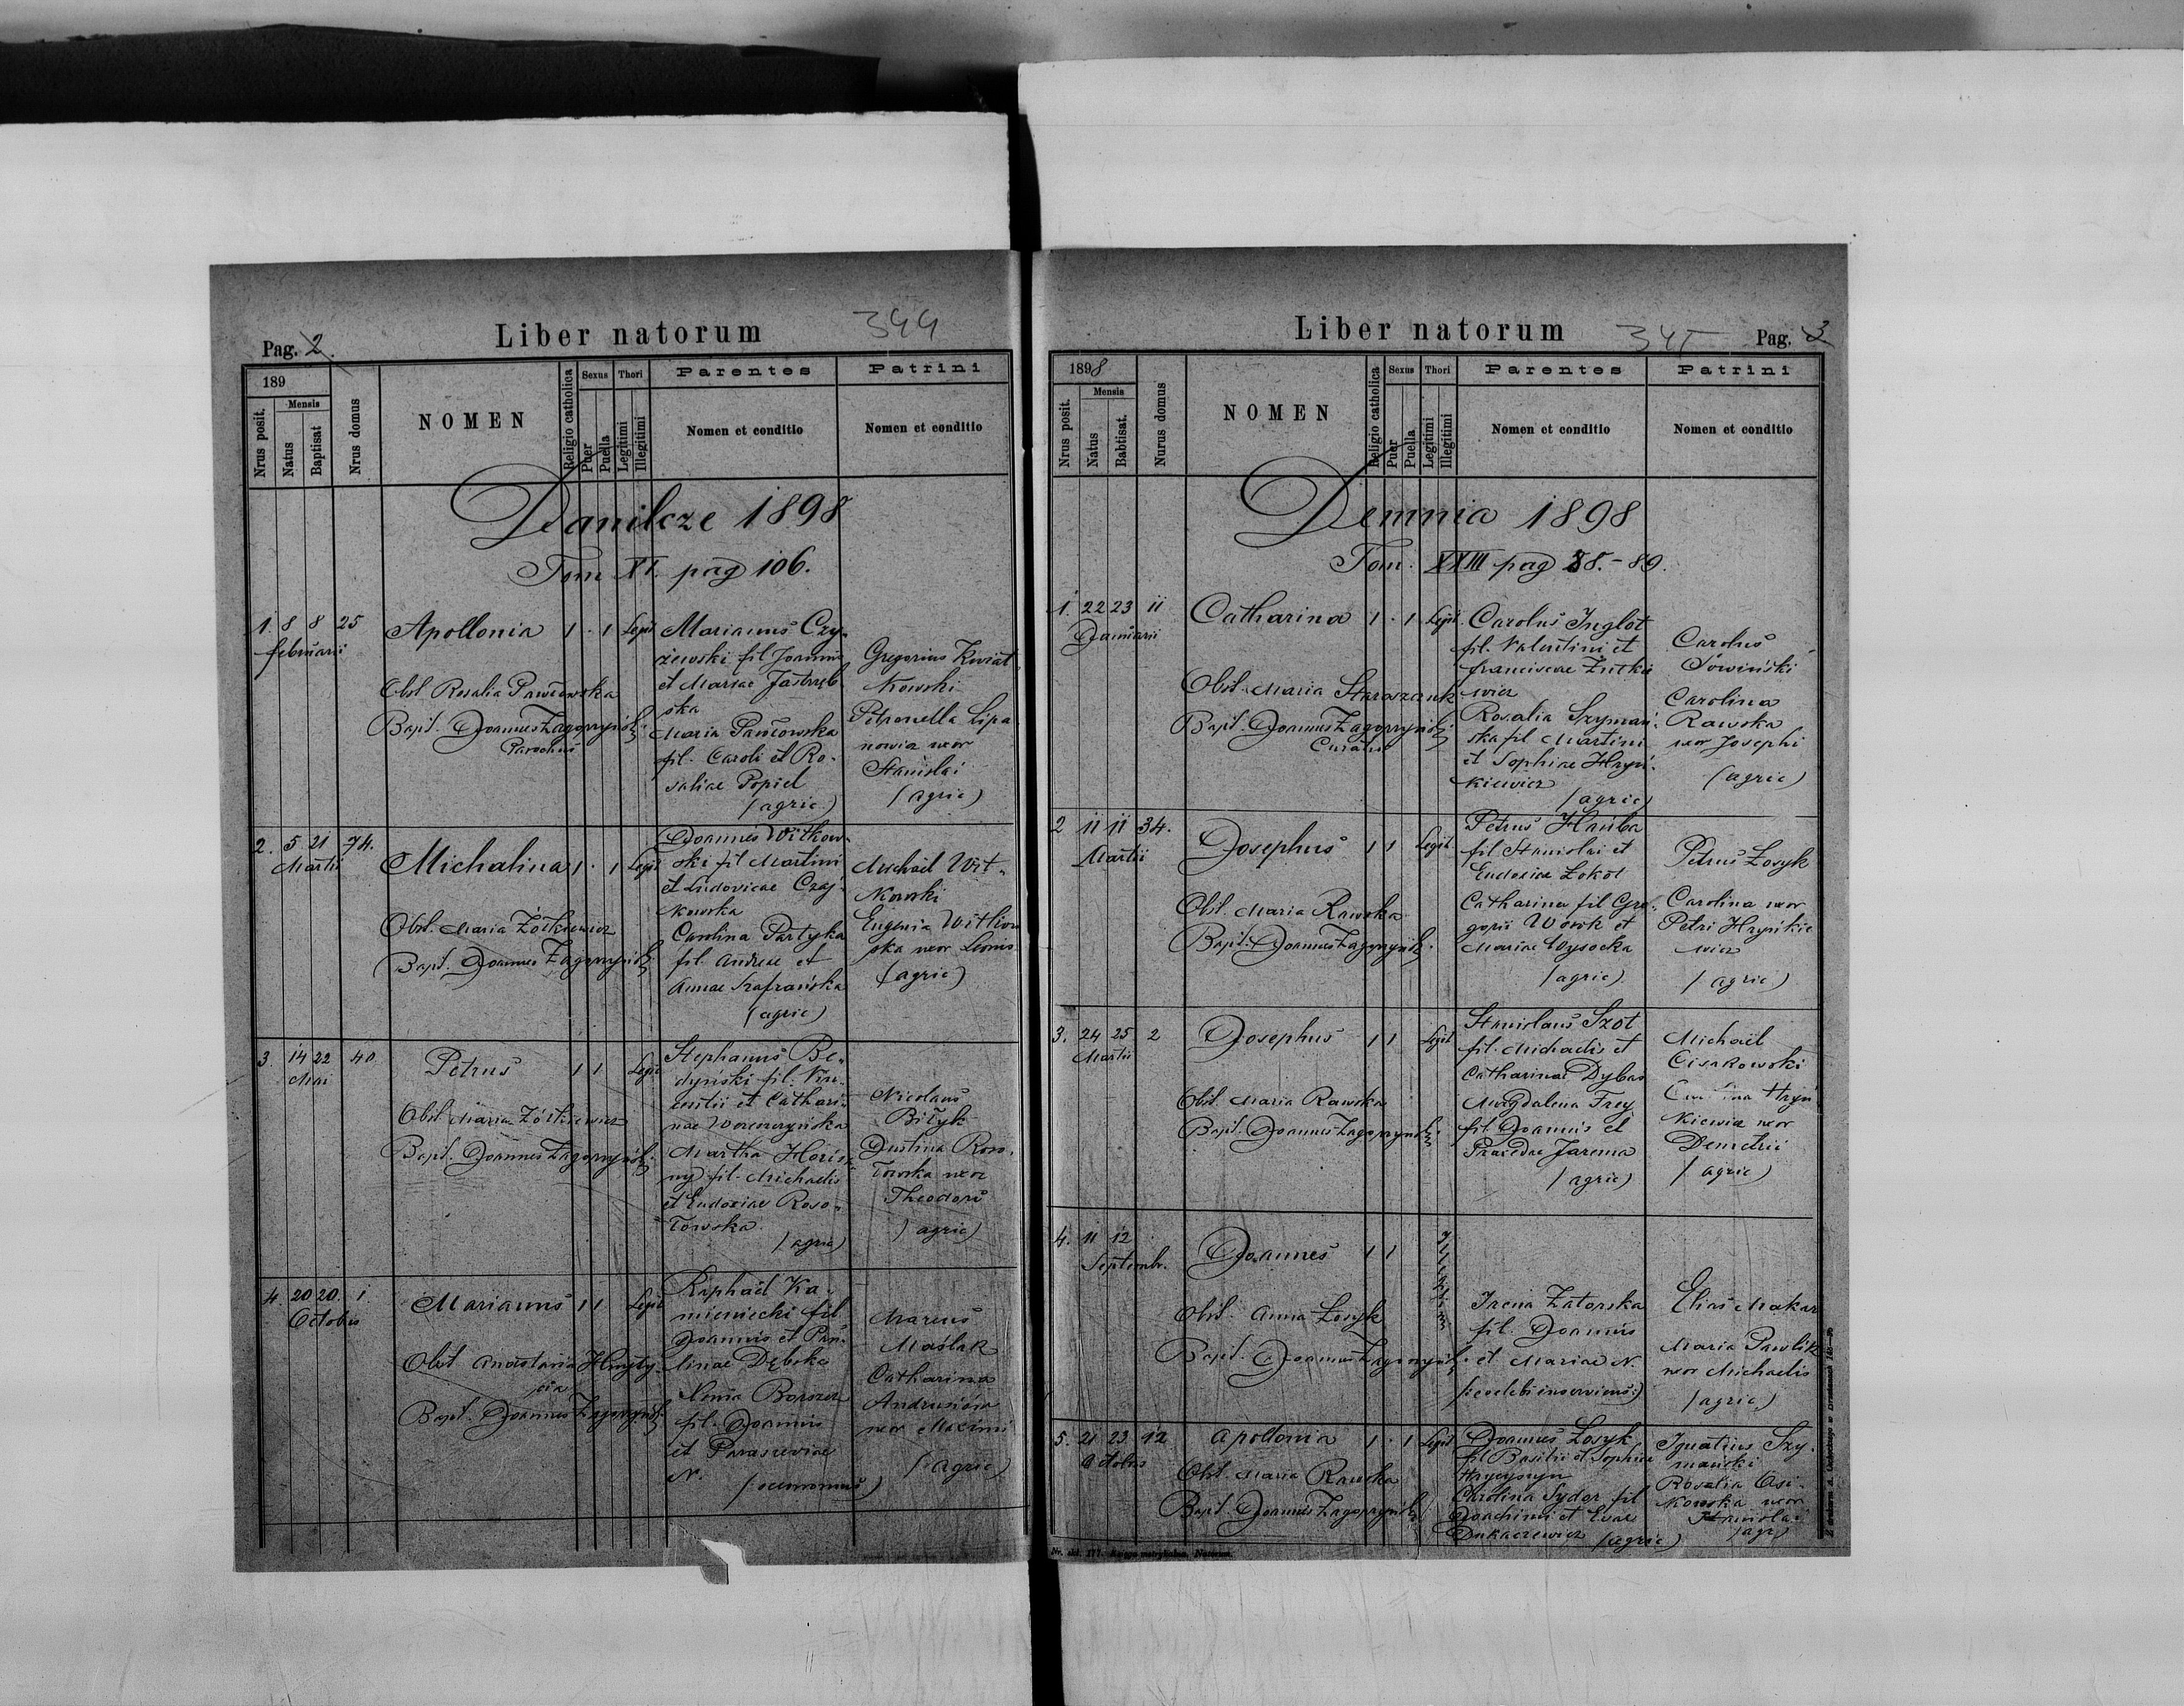 Liber natorum 344
Pag. 2.
189
Nrus posit.
Mensis
Natus
Baptisat
Nrus domus
NOMEN
Religio catholica
Sexus
Puer
Puella
Thori
Legitimi
Illegitimi
Parentes
Nomen et conditio
Patrini
Nomen et conditio
Danilcze 1898
Tom XI. pag 106.
1. 8 8 25
februarii
Apollonia 1 · 1 Legit
Obst. Rosalia Pawłowska
Bapt. Joannes Zagopryński
Parochus
Marianus Czy-
żewski fil Joannis
et Mariae Jastrzęb
ska
Maria Pawłowska
fil. Caroli et Ro-
saliae Popiel
(agric.)
Gregorius Kwiat
kowski
Petronella Lipa
nowicz uxor
Stanislai
(agric)
2. 5 21 74.
Martii
Michalina 1 · 1 Legit
Obst. Maria Żółkiewicz
Bapt. Joannes Zagopryński
Joannes Witkow-
ski fil Martini
et Ludovicae Czaj-
kowska
Carolina Partyka
fil. Andreae et
Annae Szafrańska
(agric)
Michael Wit-
kowski
Eugenia Witkow
ska uxor Leonis
(agric)
3. 14 22 40.
Mai
Petrus 1 1 Legit
Obst Maria Żółkiewicz
Bapt. Joannes Zagopryński
Stephanus Be-
dyński fil.
et Cathari-
nae
Martha
fil. Michaelis
et Eudoxiae Roso-
łowska
(agric)
Nicolaus
Biłyk
Justina Roso-
łowska uxor
Theodori
(agric)
4. 20 20. 1.
Octobris
Marianus 1 1 Legit
Obst Anastasia
Bapt. Joannes Zagopryński
Raphael Ka-
mieniecki fil
Joannis et Pau-
linae Dębska
Xenia
fil. Joannis
et Parasceviae
N.
(oeconomus)
Marcus
Maślak
Catharina
Andrusiów
uxor Maximi
(agric)
Liber natorum 345 Pag. 3
1898
Nrus posit.
Mensis
Natus
Babtisat.
Nurus domus
NOMEN
Religio catholica
Sexus
Puer
Puella
Thori
Legitimi
Illegitimi
Parentes
Nomen et conditio
Patrini
Nomen et conditio
Demnia 1898
Tom. XXIII pag 88.-89.
1. 22 23 11
Januarii
Catharina 1 · 1 Legit.
Obst. Maria Staroszczuk
Bapt. Joannes Zagopryński
Curatus
Carolus Inglot
fil. Valentini et
Franciscae Żutkie
wicz
Rosalia Szymań-
ska fil Martini
et Sophiae Hryń-
kiewicz
(agric)
Carolus
Sowiński
Carolina
Rawska
uxor Josephi
(agric)
2 11 11 34.
Martii
Josephus 1 1 Legit
Obst. Maria Rawska
Bapt. Joannes Zagopryński
Petrus Hańba
fil Stanislai et
Eudoxiae Łokot
Catharina fil Gre-
gorii Wowk et
Mariae Wysocka
(agric)
Petrus Łosyk
Carolina uxor
Petri Hryńkie
wicz
(agric)
3. 24 25 2
Martii
Josephus 1 1 Legit
Obst Maria Rawska
Bapt. Joannes Zagopryński
Stanislaus Szot
fil. Michaelis et
Catharinae Dybas
Magdalena Frey
fil Joannis et
Praxedae Jarema
(agric)
Michael
Cisakowski
Hryń
kiewicz uxor
Demetrii
(agric)
4. 11 12
Septembr.
Joannes 1 1 Illegitimi
Obst. Anna Łosyk
Bapt. Joannes Zagopryński
Irena Zatorska
fil. Joannis
et Mariae N.
Elias Makar
Maria Pawlik
uxor Michaelis
(agric)
5. 21 23 12
Octobris
Apollonia 1 · 1 Legit
Obst. Maria Rawska
Bapt. Joannes Zagopryński
Joannes Łosyk
fil Basilii et Sophiae
Hrycyszyn
Carolina Sydor fil
Joachimi et Evae
Dukaczewicz (agric)
Ignatius Szy-
mański
Rosalia Osi-
kowska uxor
Stanislai
(agr)